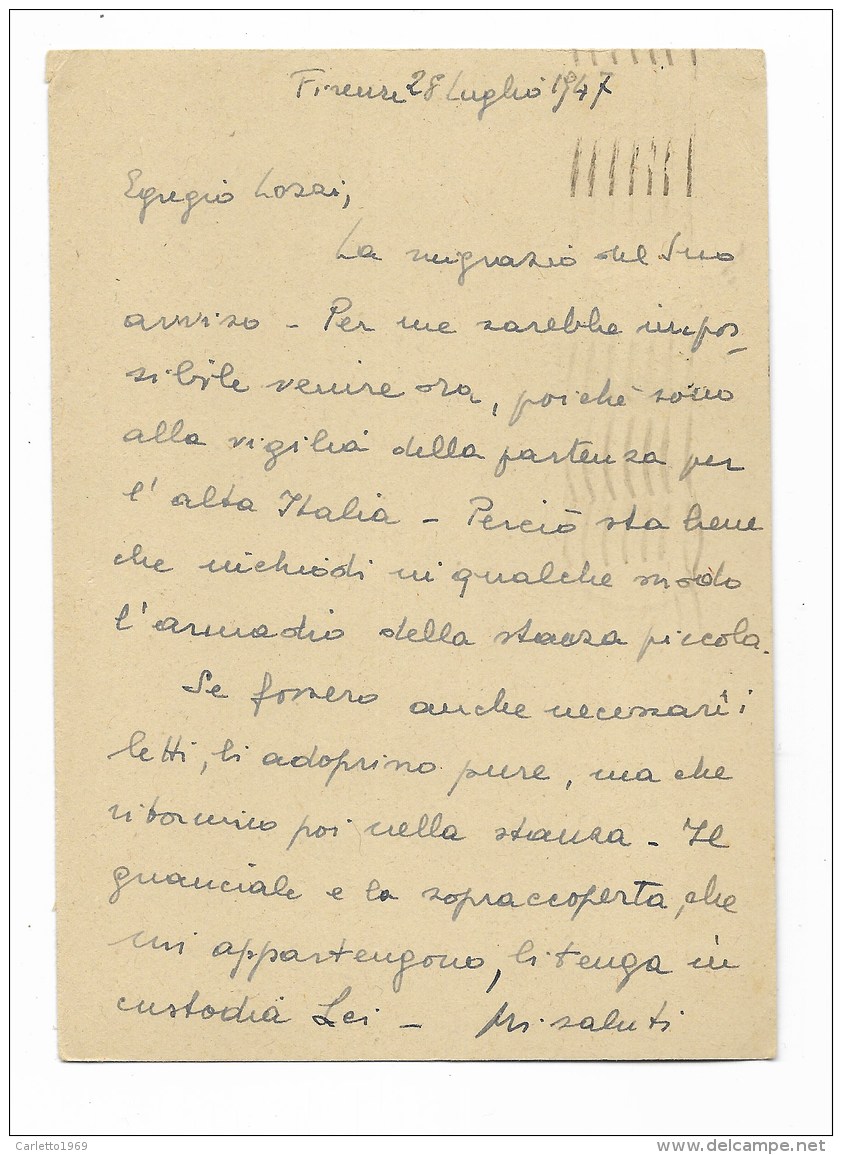 Firenze 28 Luglio 1947
Egregio Lozzi,
La ringrazio del Suo
avviso - Per me sarebbe impos-
sibile venire ora, poichè sono
alla vigilia della partenza per
l'alta Italia - Perciò sta bene
che inchiodi in qualche modo
l'armadio della stanza piccola.
Se fossero anche necessari i
letti, li adoprino pure, ma che
ritornino poi nella stanza - Il
guanciale e la sopraccoperta, che
mi appartengono, li tenga in
custodia Lei - Mi saluti
Carletto1969
delcampe.net